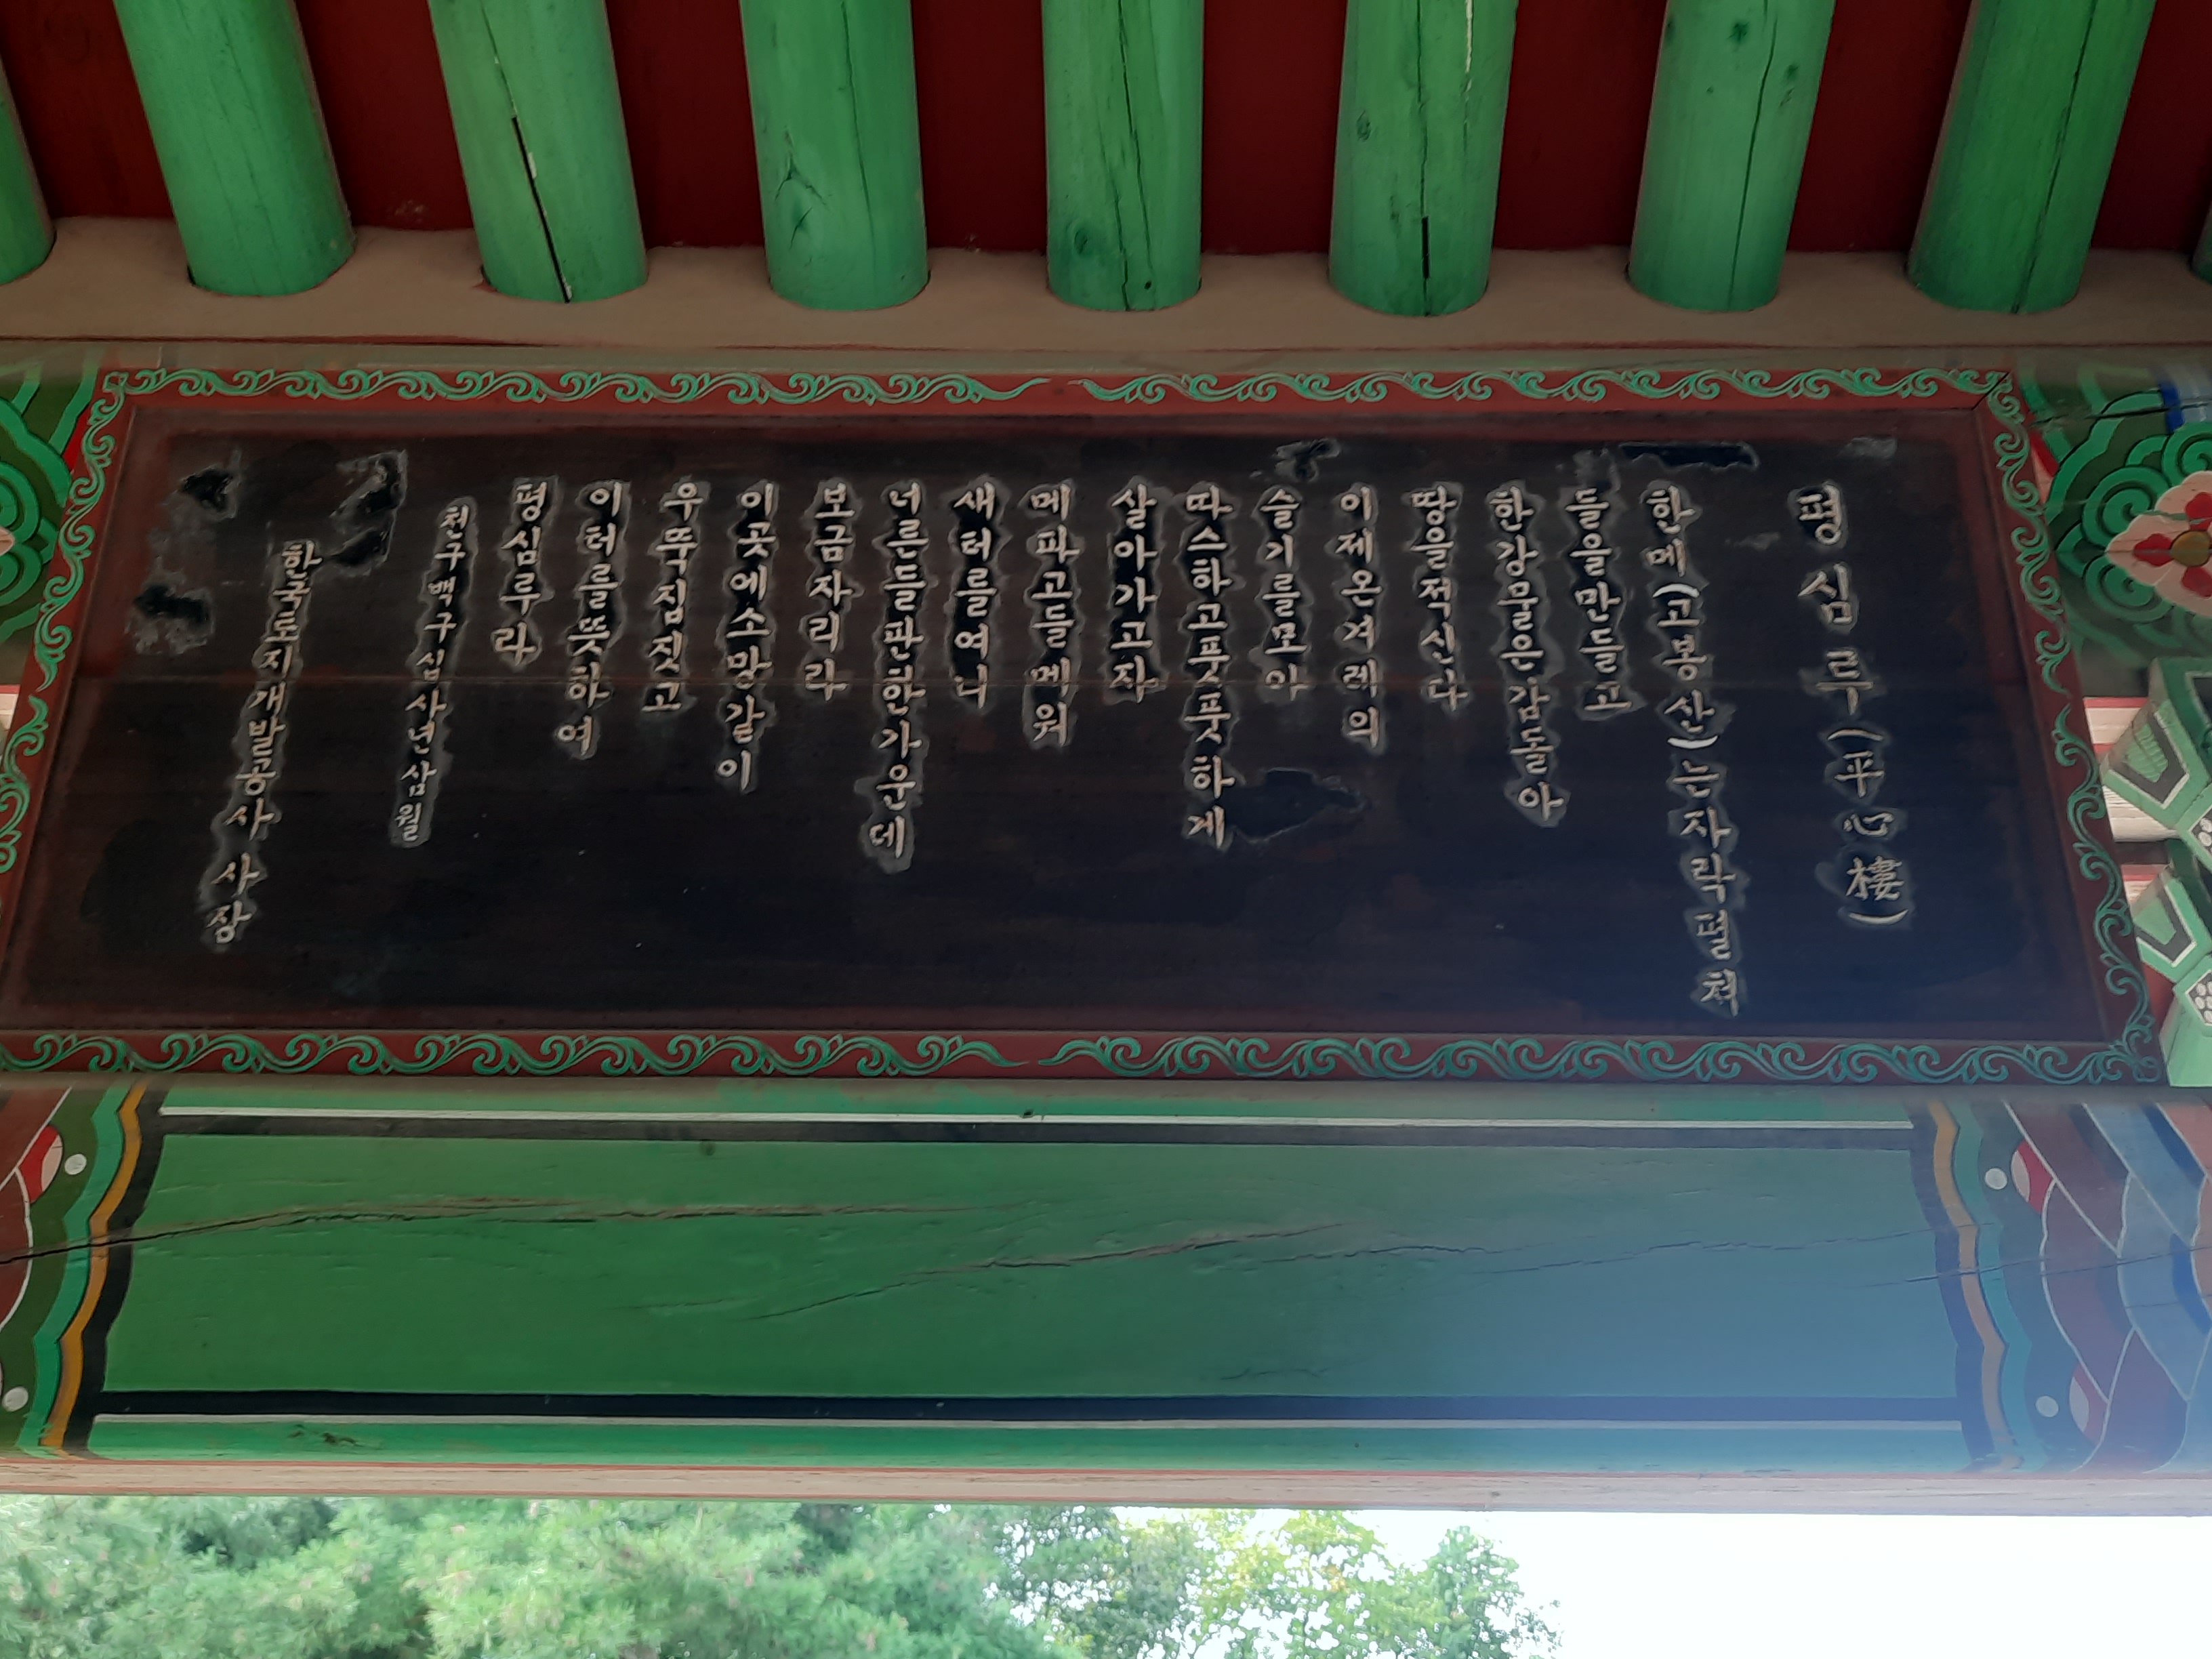 평심루(平心樓)
한메(고봉산)는자락펼쳐
들을만들고
한강물은감돌아
땅을적신다
이제온겨레의
슬기를모아
따스하고풋풋하게
살아가고자
메파고들메워
새터를여니
너른들판한가운데
보금자리라
이곳에소망갈이
우뚝짐짓고
이터를뜻하여
평심루라
천구백구십사년삼월
한국토지개발공사 사장